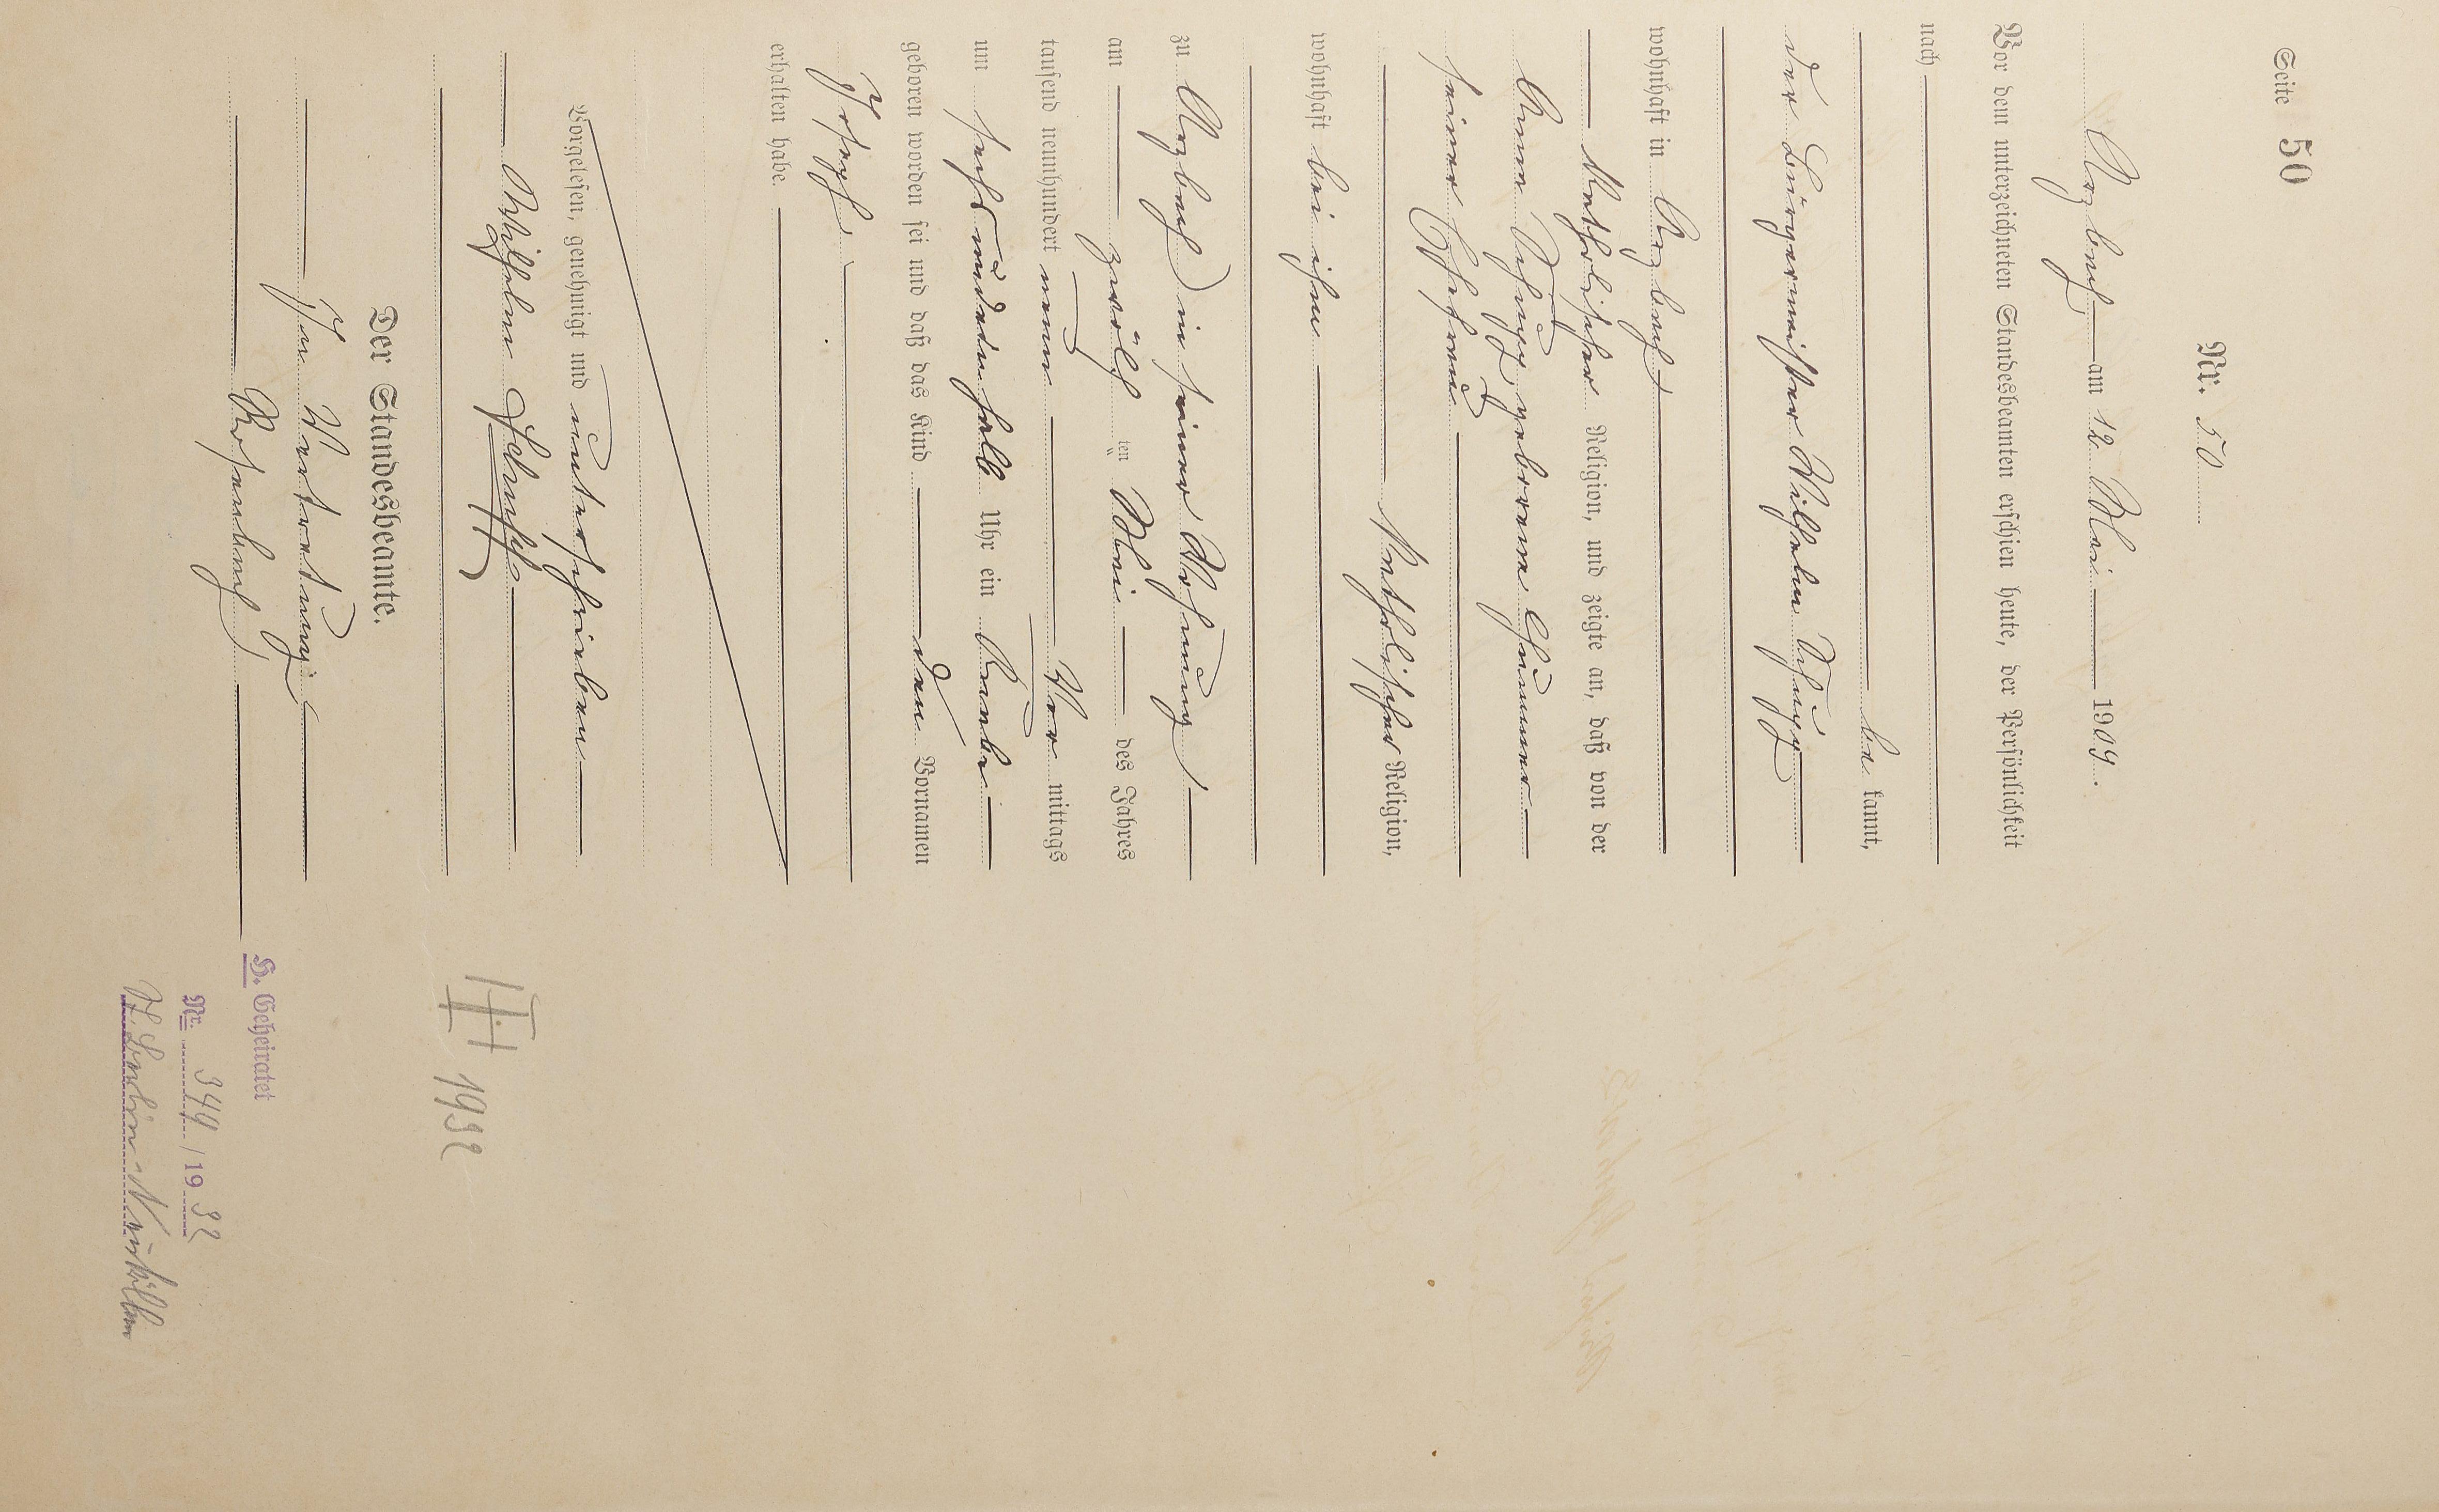 Seite 50
Nr. 50
Arzbach am 12. Mai 1909.
Vor dem unterzeichneten Standesbeamten erschien heute, der Persönlichkeit
nach
be kannt,
der Bürgermeister Wilhelm Schupp
wohnhaft in Arzbach,
katholischer Religion, und zeigte an, daß von der
Anna Schupp geborene Thummer
seiner Ehefrau
katholischer Religion,
wohnhaft bei ihm
zu Arzbach in seiner Wohnung
am zwölf ten Mai des Jahres
tausend neunhundert neun Vor mittags
um sechs und ein halb Uhr ein Knabe
geboren worden sei und daß das Kind den Vornamen
Joseph
erhalten habe.
Vorgelesen, genehmigt und unterschrieben
Wilhelm Schupp
Der Standesbeamte.
In Vertretung
H. Geheiratet
Nr. 344 / 19 32
St. Berlin-Neukölln
III 1932